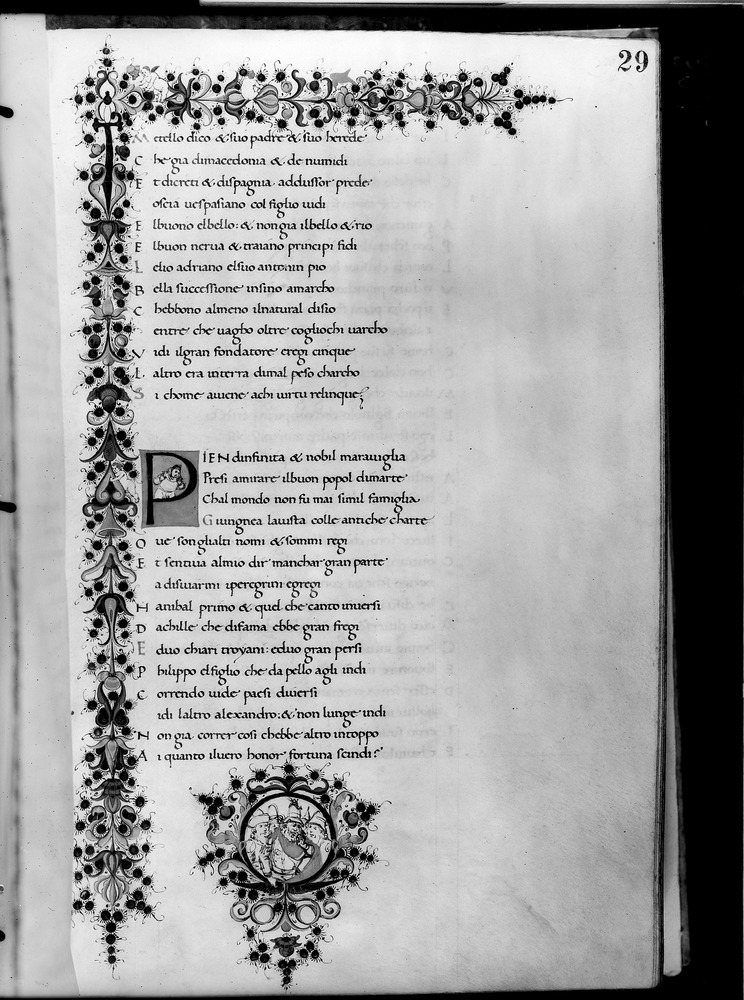 29
Metello dico & suo padre & suo herede
Che gia dimacedonia & de numidi
Et dicreti & dispagna. addussor prede
oscia uespasiano col figlio uidi
El buono elbello: & non gia ilbello & rio
El buon nerua & traiano principi fidi
Lelio adriano elsuo antonin pio
Bella successione insino amarcho
Chebbono almeno ilnatural disio
entre che uagho oltre cogliochi uarcho
Vidi ilgran fondatore eregi cinque
Laltro era interra dimal peso charcho
Si chome auiene achi uirtu relinque
PIEN dinfinita & nobil marauiglia
Presi amirare ilbuon popol dimarte
Chal mondo non fu mai simil famiglia
Giungnea lauista colle antiche charte
Oue son glialti nomi & sommi regi
Et sentiua almio dir manchar gran parte
a disuiarmi iperegrini egregi
Hanibal primo & quel che canto inuersi
Dachille che difama ebbe gran fregi
E duo chiari troyani: eduo gran persi
Philippo elfiglio che da pello agli indi
Correndo uide paesi diuersi
idi laltro alexandro: & non lunge indi
Non gia correr cosi chebbe altro intoppo
Ai quanto iluero honor fortuna scindi